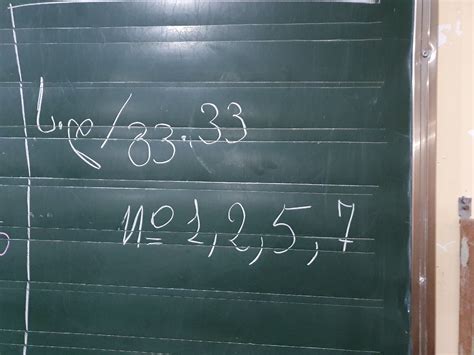 ს.დ/გვ.33
№ 1,2,5,7